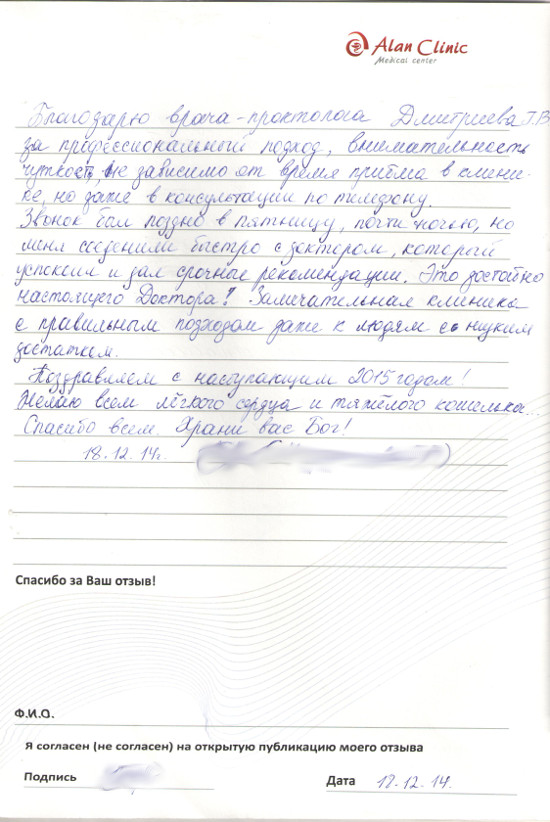 Alan Clinic
Medical center
Благодарю врача-проктолога Дмитриева Т.В
за профессиональный подход, внимательность
чуткость, не зависимо от время приёма в клини-
ке, но даже в консультации по телефону.
Звонок был поздно в пятницу, почти ночью, но
меня соеденили быстро с доктором, который
успокоил и дал срочные рекомендации. Это достойно
настоящего Доктора! Замечательная клиника
с правильным подходом даже к людям со низким
достатком.
Поздравляем с наступающим 2015 годом!
Желаю всем лёгкого сердца и тяжёлого кошелька...
Спасибо всем. Храни вас Бог!
18.12.14г.
Спасибо за Ваш отзыв!
Ф.И.О.
Я согласен (не согласен) на открытую публикацию моего отзыва
Подпись
Дата 18.12.14.